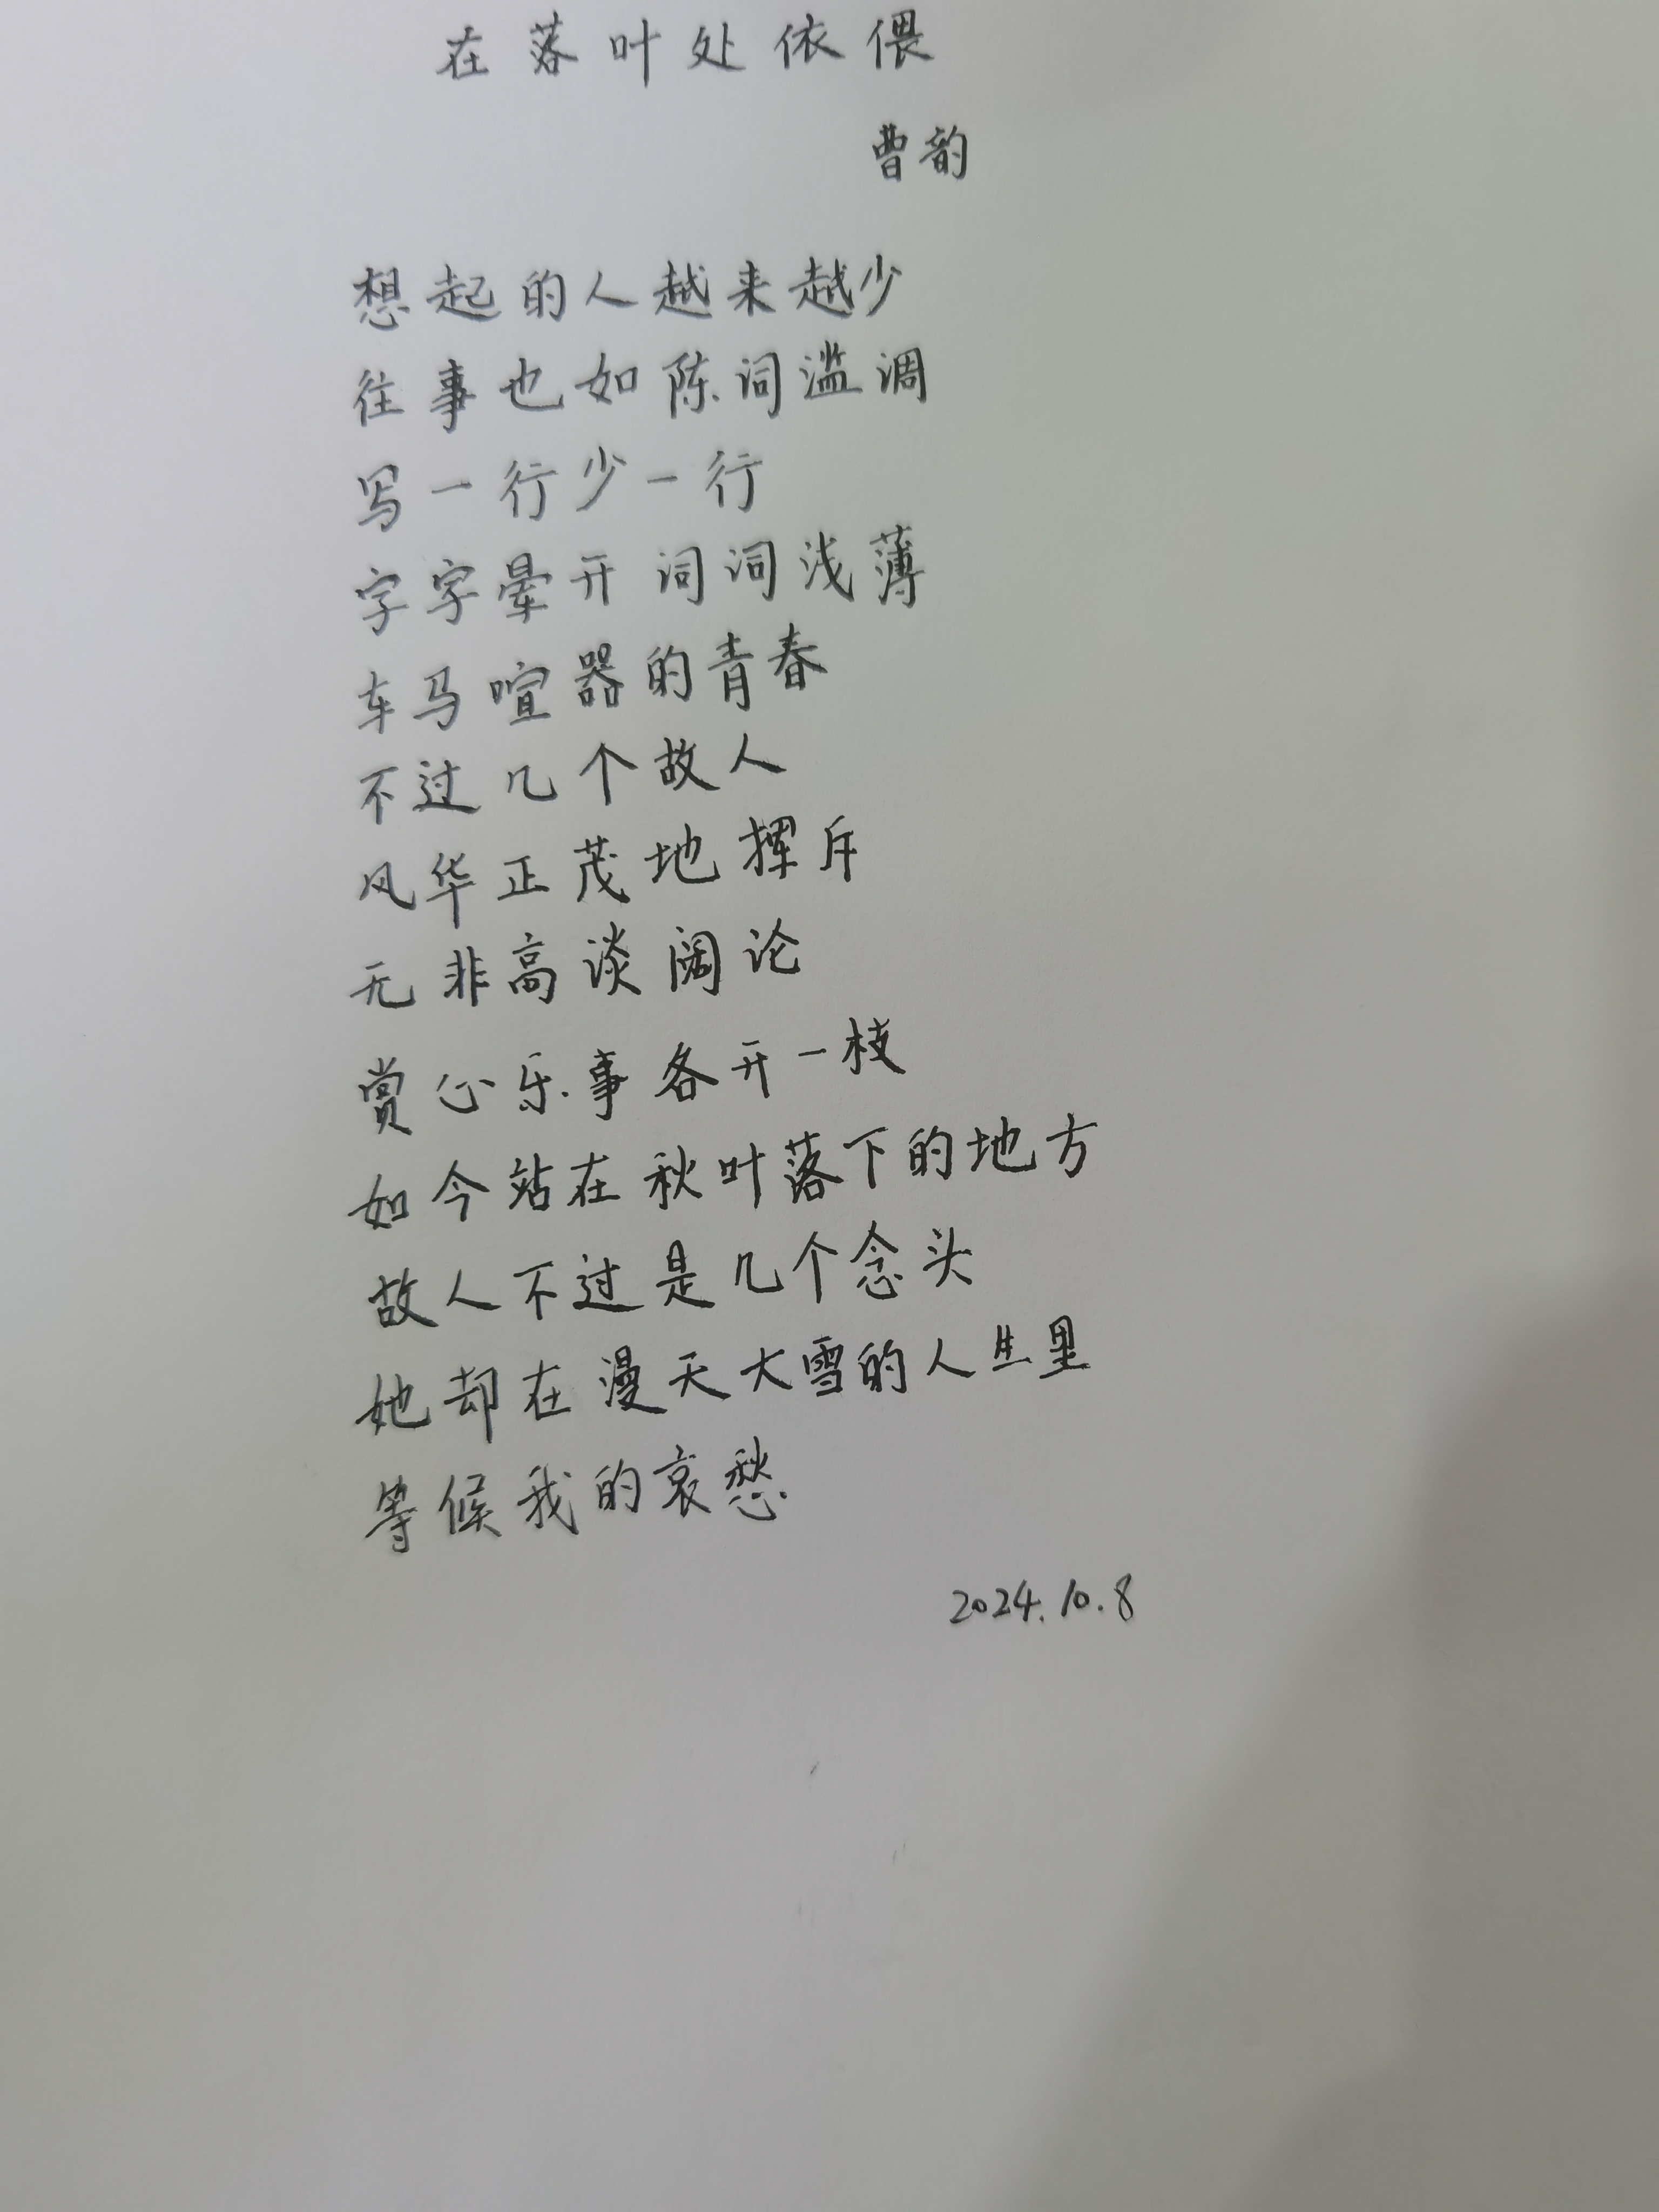 在落叶处依偎
曹韵
想起的人越来越少
往事也如陈词滥调
写一行少一行
字字晕开 词词浅薄
车马喧器的青春
不过几个故人
风华正茂地挥斥
无非高谈阔论
赏心乐事各开一枝
如今站在秋叶落下的地方
故人不过是几个念头
她却在漫天大雪的人生里
等候我的哀愁
2024.10.8